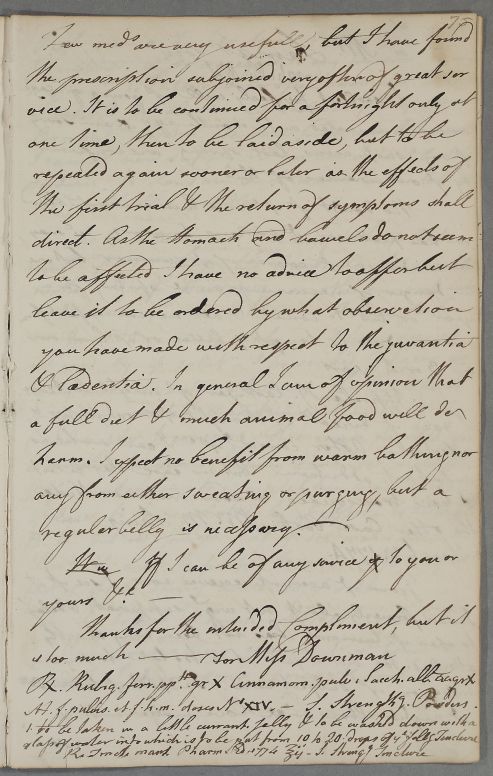 Few meds are very usefull, but I have found
the prescription subjoined very often of great ser
vice. It is to be continued for a fortnight only at
one time, then to be laid aside, but to be
repeated again sooner or later as the effects of
the first trial & the return of symptoms shall
direct. As the stomach and bowels do not seem
to be affected I have no advice to offer but
leave it to be ordered by what observation
you have made with respect to the juvantia
& Lædentia. In general I am of opinion that
a full diet & much animal food will do
harm. I expect no benefit from warm bathing nor
any from either sweating or purging, but a
regular belly is necessary.
If I can be of any service to you or
yours &c —
Thanks for the intended Compliment, but it
is too much — For Miss Downman
Rx. Rubig. ferr. ppt. gr X Cinnamom. pulv. Sacch. alb. aa gr X
M. f. pulvis. et f. h. m. doses No XIV — S. Strengthg. Powders.
to be taken in a little currant Jelly & to be washed down with a
glass of water into which is to be put from 10 to 20 drops of ye Tincture
Rx Tinct. mart. Pharm. Ed. 1774 S. Strengg Tincture